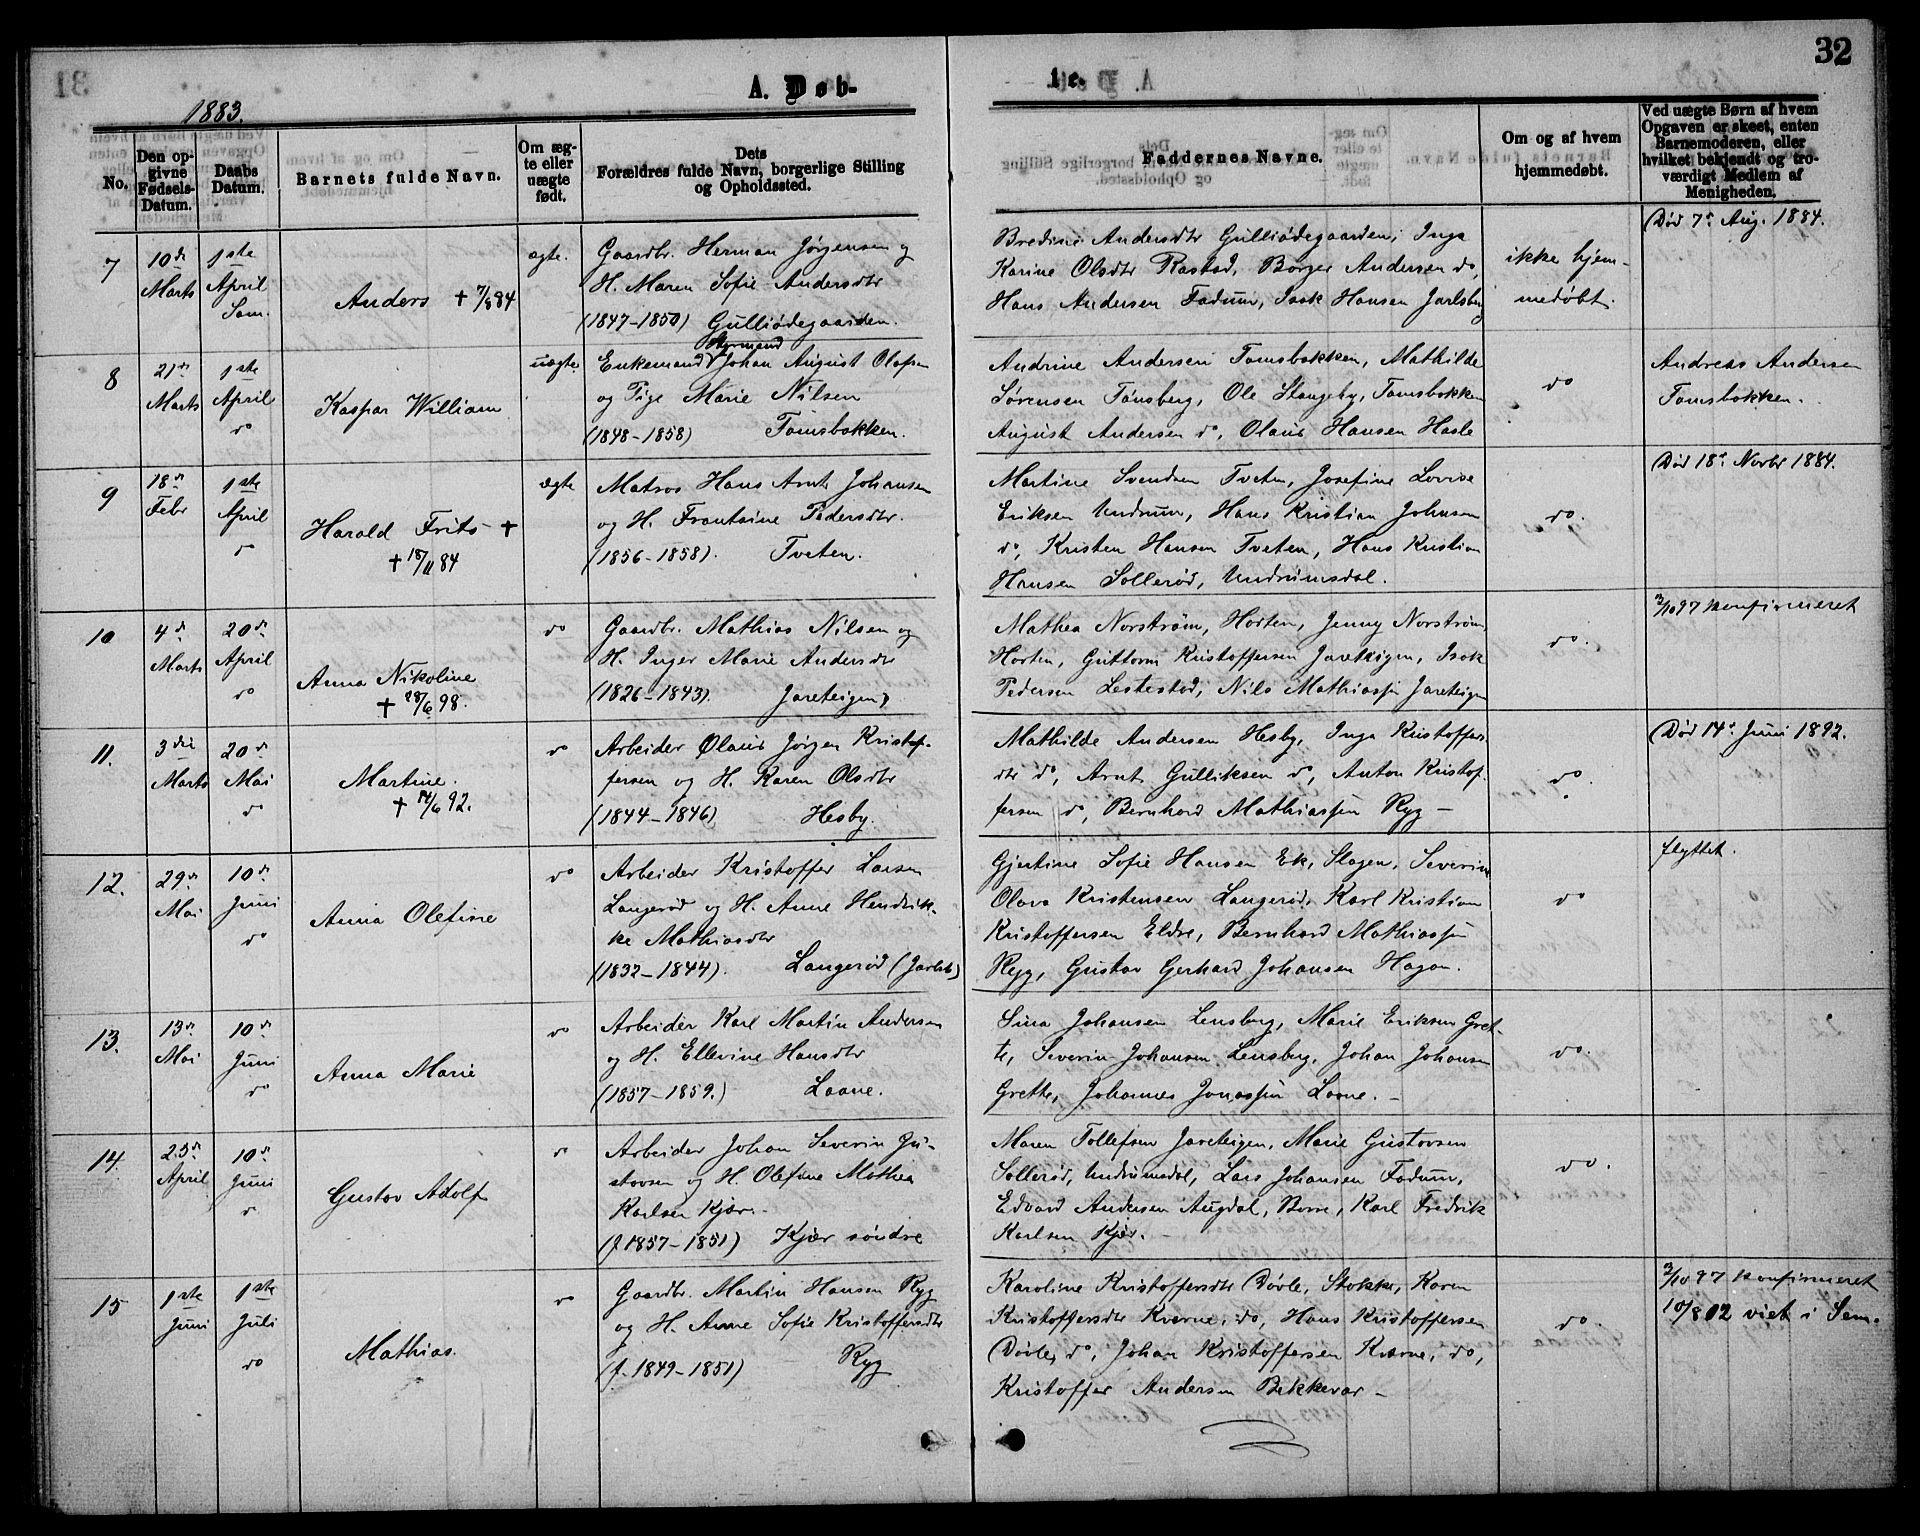 32
A. Døb-
te.
1883.
No.
Den op-
givne
Fødsels-
Datum.
Daabs
Datum.
Barnets fulde Navn.
Om æg-
te eller
uægte
født.
Dets
Forældres fulde Navn, borgerlige Stilling
og Opholdssted.
Faddernes Navne.
Om og af hvem
hjemmedøbt.
Ved uægte Børn af hvem
Opgaven er skeet, enten
Barnemoderen, eller
hvilket bekjendt og tro-
værdigt Medlem af
Menigheden.
7
10de
Marts
1ste
April
Sem.
Anders + 7/8 84
ægte.
Gaardbr. Herman Jørgensen og
H. Maren Sofie Andersdtr
(1847-1850) Gulliødegaarden.
Bredine Andersdtr Gulliødegaarden, Inga
Karine Olsdtr Rastad, Borger Andersen do,
Hans Andersen Fadum, Isak Hansen Jarlsberg
ikke hjem-
medøbt.
Død 7de Aug. 1884.
8
21de
Marts
1ste
April
do
Kaspar William
uægte
Styrmand
Enkemand Johan August Olafsen
og Pige Marie Nilsen
(1848-1858) Tomsbakken.
Andrine Andersen Tomsbakken, Mathilde
Sørensen Tønsberg, Ole Stangeby, Tomsbakken
August Andersen do, Olaus Hansen Hasle
do
Andreas Andersen
Tomsbakken.
9
18de
Febr
1ste
April
do
Harald Frits +
+ 18/11 84
ægte
Matros Hans Arnt Johansen
og H. Frantsine Pedersdtr.
(1856-1858). Tveten.
Martine Svendsen Tveten, Josefine Lovise
Eriksen Undrum, Hans Kristian Johnsen
do, Kristen Hansen Tveten, Hans Kristian
Hansen Sollerød, Undrumsdal.
do.
Død 18de Novbr 1884.
10
4de
Marts
20de
April
do
Anna Nikoline
+ 28/6 98.
do
Gaardbr. Mathias Nilsen og
H. Inger Marie Andersdtr
(1826-1843). Jareteigen.
Mathea Norstrøm, Horten, Jenny Norstrøm,
Horten, Guttorm Kristoffersen Jareteigen, Isak
Pedersen Lestestad, Nils Mathiassen Jareteigen
do.
3/10 97 konfirmeret
11.
3die
Marts
20de
Mai
do
Martine.
+ 14/6 92.
do
Arbeider Olaus Jørgen Kristof-
fersen og H. Karen Olsdtr
(1844-1846) Hesby.
Mathilde Andersen Hesby, Inga Kristoffers-
dtr do, Arnt Gulliksen do, Anton Kristof-
fersen do, Bernhard Mathiassen Ryg -
do
Død 14de Juni 1892.
12.
29de
Mai
10de
Juni
do
Anna Olefine
do
Arbeider Kristoffer Larsen
Langerød og H. Anne Hendrik-
ke Mathiasdtr
(1832-1844). Langerød (Jarlsb)
Gjertine Sofie Hansen Ek, Slagen, Severin
Olava Kristensen Langerød, Karl Kristian
Kristoffersen Eldre, Bernhard Mathiassen
Ryg, Gustav Gerhard Johansen Hagan.
do
flyttet.
13.
13de
Mai
10de
Juni
do
Anna Marie
do
Arbeider Karl Martin Andersen
og H. Ellevine Hansdtr
(1857-1859.) Laane.
Sina Johansen Lensberg, Marie Eriksen Gret-
te, Severin Johansen Lensberg, Johan Johansen
Grette, Johannes Jonassen Laane. -
do.
14.
25de
April
10de
Juni
do
Gustav Adolf
do
Arbeider Johan Severin Gu-
stavsen og H. Olefine Mathea
Karlsen Kjær.
(f. 1857-1851) Kjær søndre
Maren Tollefsen Jareteigen, Marie Gustavsen
Sollerød, Undrumsdal, Lars Johansen Fadum,
Edvard Andersen Augdal, Borre, Karl Fredrik
Karlsen Kjær. -
do.
15
1ste
Juni
1ste
Juli
do
Mathias.
do
Gaardbr. Martin Hansen Ryg
og H. Anne Sofie Kristoffersdtr
(f. 1849-1851) Ryg
Karoline Kristoffersdtr Døvle, Stokke, Karen
Kristoffersdtr Kværne, do, Hans Kristoffersen
Døvle, do, Johan Kristoffersen Kværne, do,
Kristoffer Andersen Bekkevar -
do.
3/10 97 konfirmeret
10/8 02 viet i Sem.